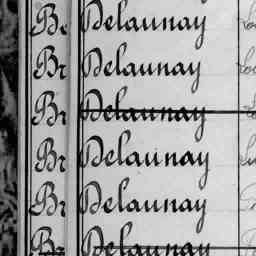 Br Delaunay
Br Delaunay
Br Delaunay
Br Delaunay
Br Delaunay
Br Delaunay